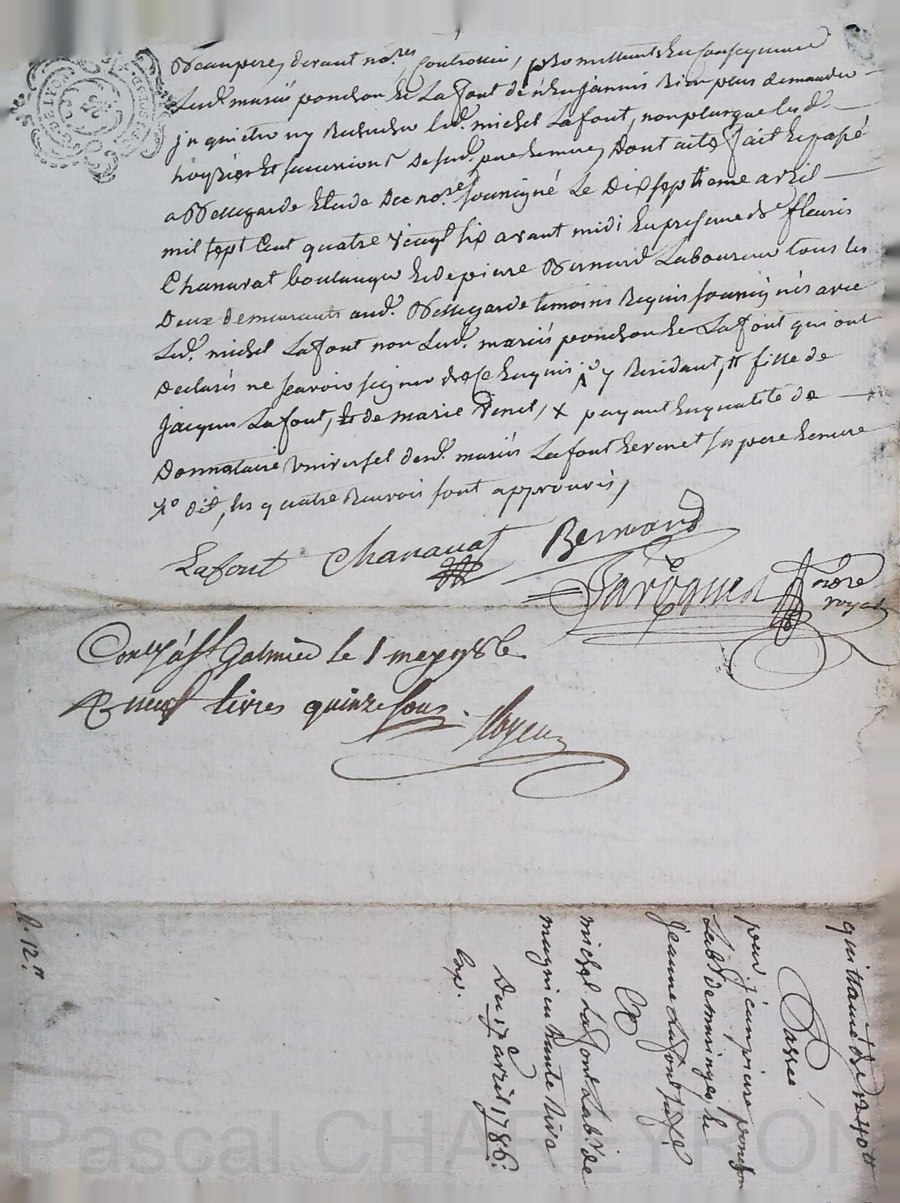 devant no.res
lesd. mariés ponchon et Lafont de n'en jamais rien plus demander
ny Rechercher led. michel Lafont, non plus que les d.
hoyries et successions desd. pere et mere, Dont acte, fait et passé
a Bellegarde Etude Des no.res soussigné Le Dix septieme avril
mil sept Cent quatre vingt six avant midi En presence de fleuris
Chanavat boulanger et de pierre Bernard Laboureur tous les
Deux demeurants aud. Bellegarde temoins Requis soussignés avec
Led. michel Lafont non Lesd. mariés ponchon et Lafont qui ont
declarés ne scavoir signer de ce Enquis y Residant, fille de
Jacques Lafont, et de marie Venet, x payant En qualité de
Donnataire Universel desd. mariés Lafont et venet ses pere et mere
les quatre Renvois sont approuvés,
Lafont Chanavat Bernard
no.re royal
Con.lé à St Galmier le 1 may 1786
R neuf livres quinze sous.
R. 12.tt
quittance de
Passée
par jean pierre ponchon
Lab.r de et
jeanne Lafont
a
michel Lafont Lab.r de
Du 17.e avril 1786.
Exp.
DE LYON
Pascal CHAREYRON